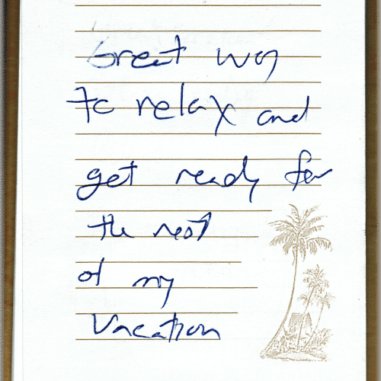 Great way
to relax and
get ready for
the rest
of my
Vacation